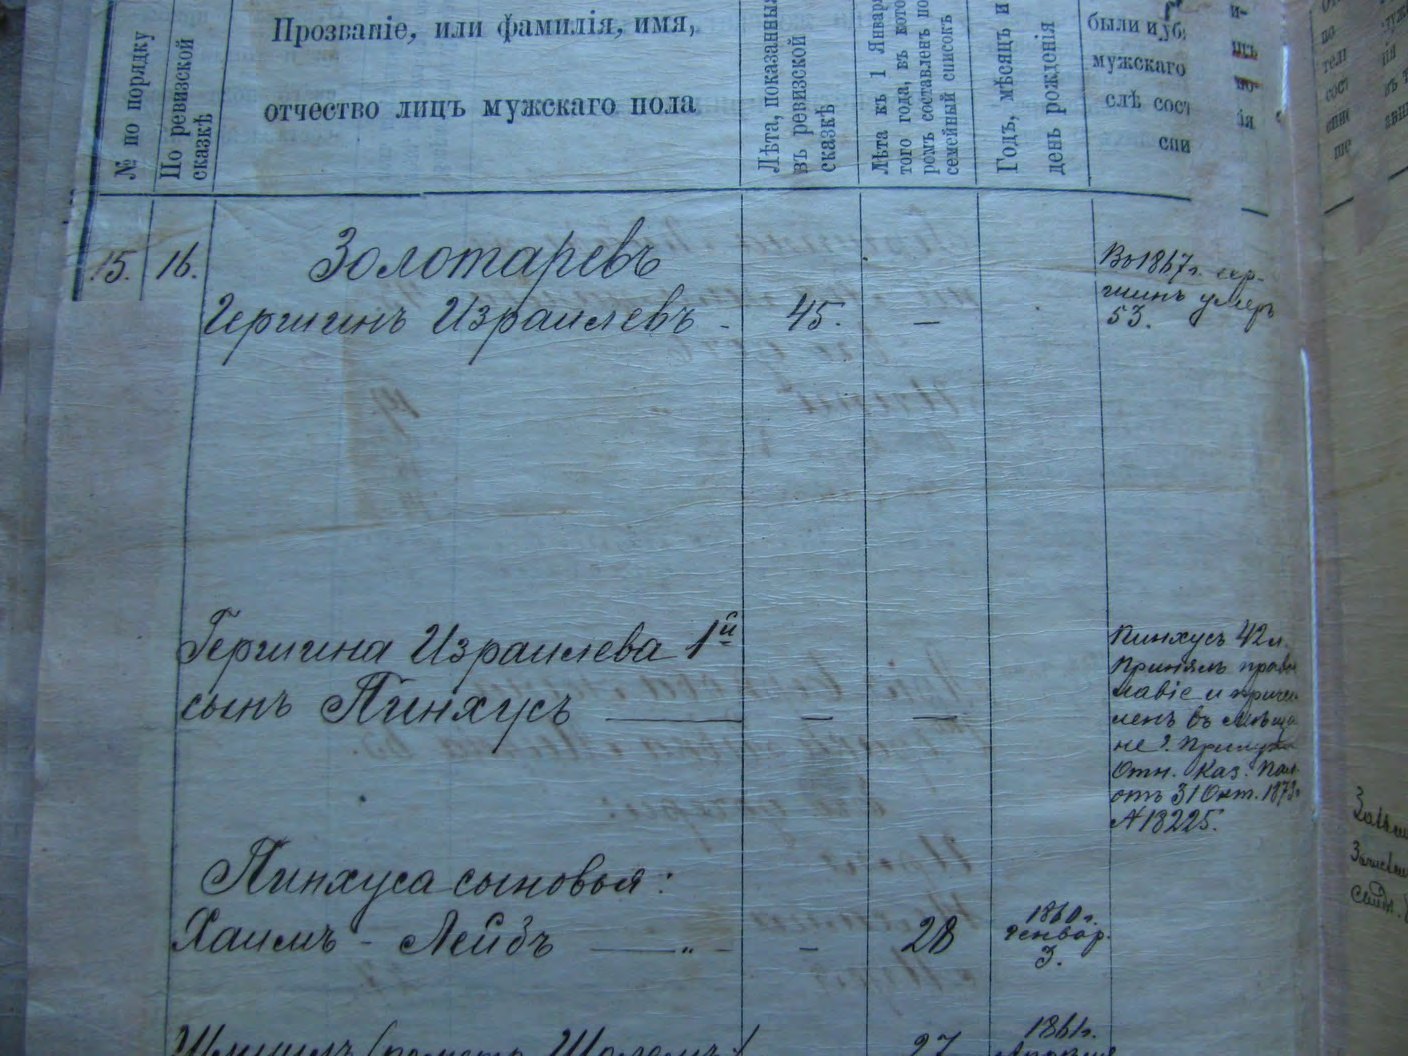 № по порядку
По ревизской
сказкѣ
Прозваніе, или фамилія, имя,
отчество лицъ мужскаго пола
Лѣта, показанныя
въ ревизской
сказкѣ
Лѣта къ 1 Январ
того года, въ кото
ромъ составленъ по
семейный списокъ
Годъ, мѣсяцъ и
день рожденія
были и уб
мужскаго
слѣ сост
спи
15. 16. Золотаревъ
Гершинъ Израилевъ - 45. —
Во 1867 г. Гер-
шинъ умеръ
53.
Гершина Израилева 1й
сынъ Пинхусъ — — —
Пинхусъ 42 л.
Принялъ право
славіе и причи
ленъ въ Мѣща
не г.
Отн. Каз. Пал.
отъ 31 Окт. 1873 г.
№ 18225.
Пинхуса сыновья:
Хаимъ - Лейбъ — „ - - 28
1860 г.
Генвар.
3.
(
Шоломъ) 27
1861 г.
Апрѣля